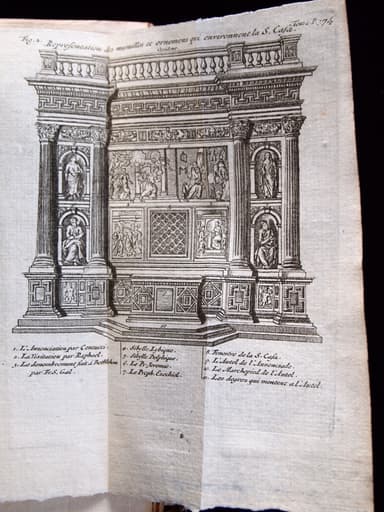 Fig. 2.
Tom. I. 374
Representation des murailles et ornemens qui environnent la S. Casa.
1. L'Annonciation par Contucci.
2. La Visitation par Raphael.
3. Le denombrement fait à Bethlehem
par Fr. S. Gal.
4. Sibelle Lybique.
5. Sibelle Delphique.
6. Le Pr. Jeremie.
7. Le Proph. Ezechiel.
8. Fenestre de la S. Casa.
9. L'Autel de l'Annonciade.
10. Le Marchepied de l'Autel.
11. Les degrez qui montent a l'Autel.